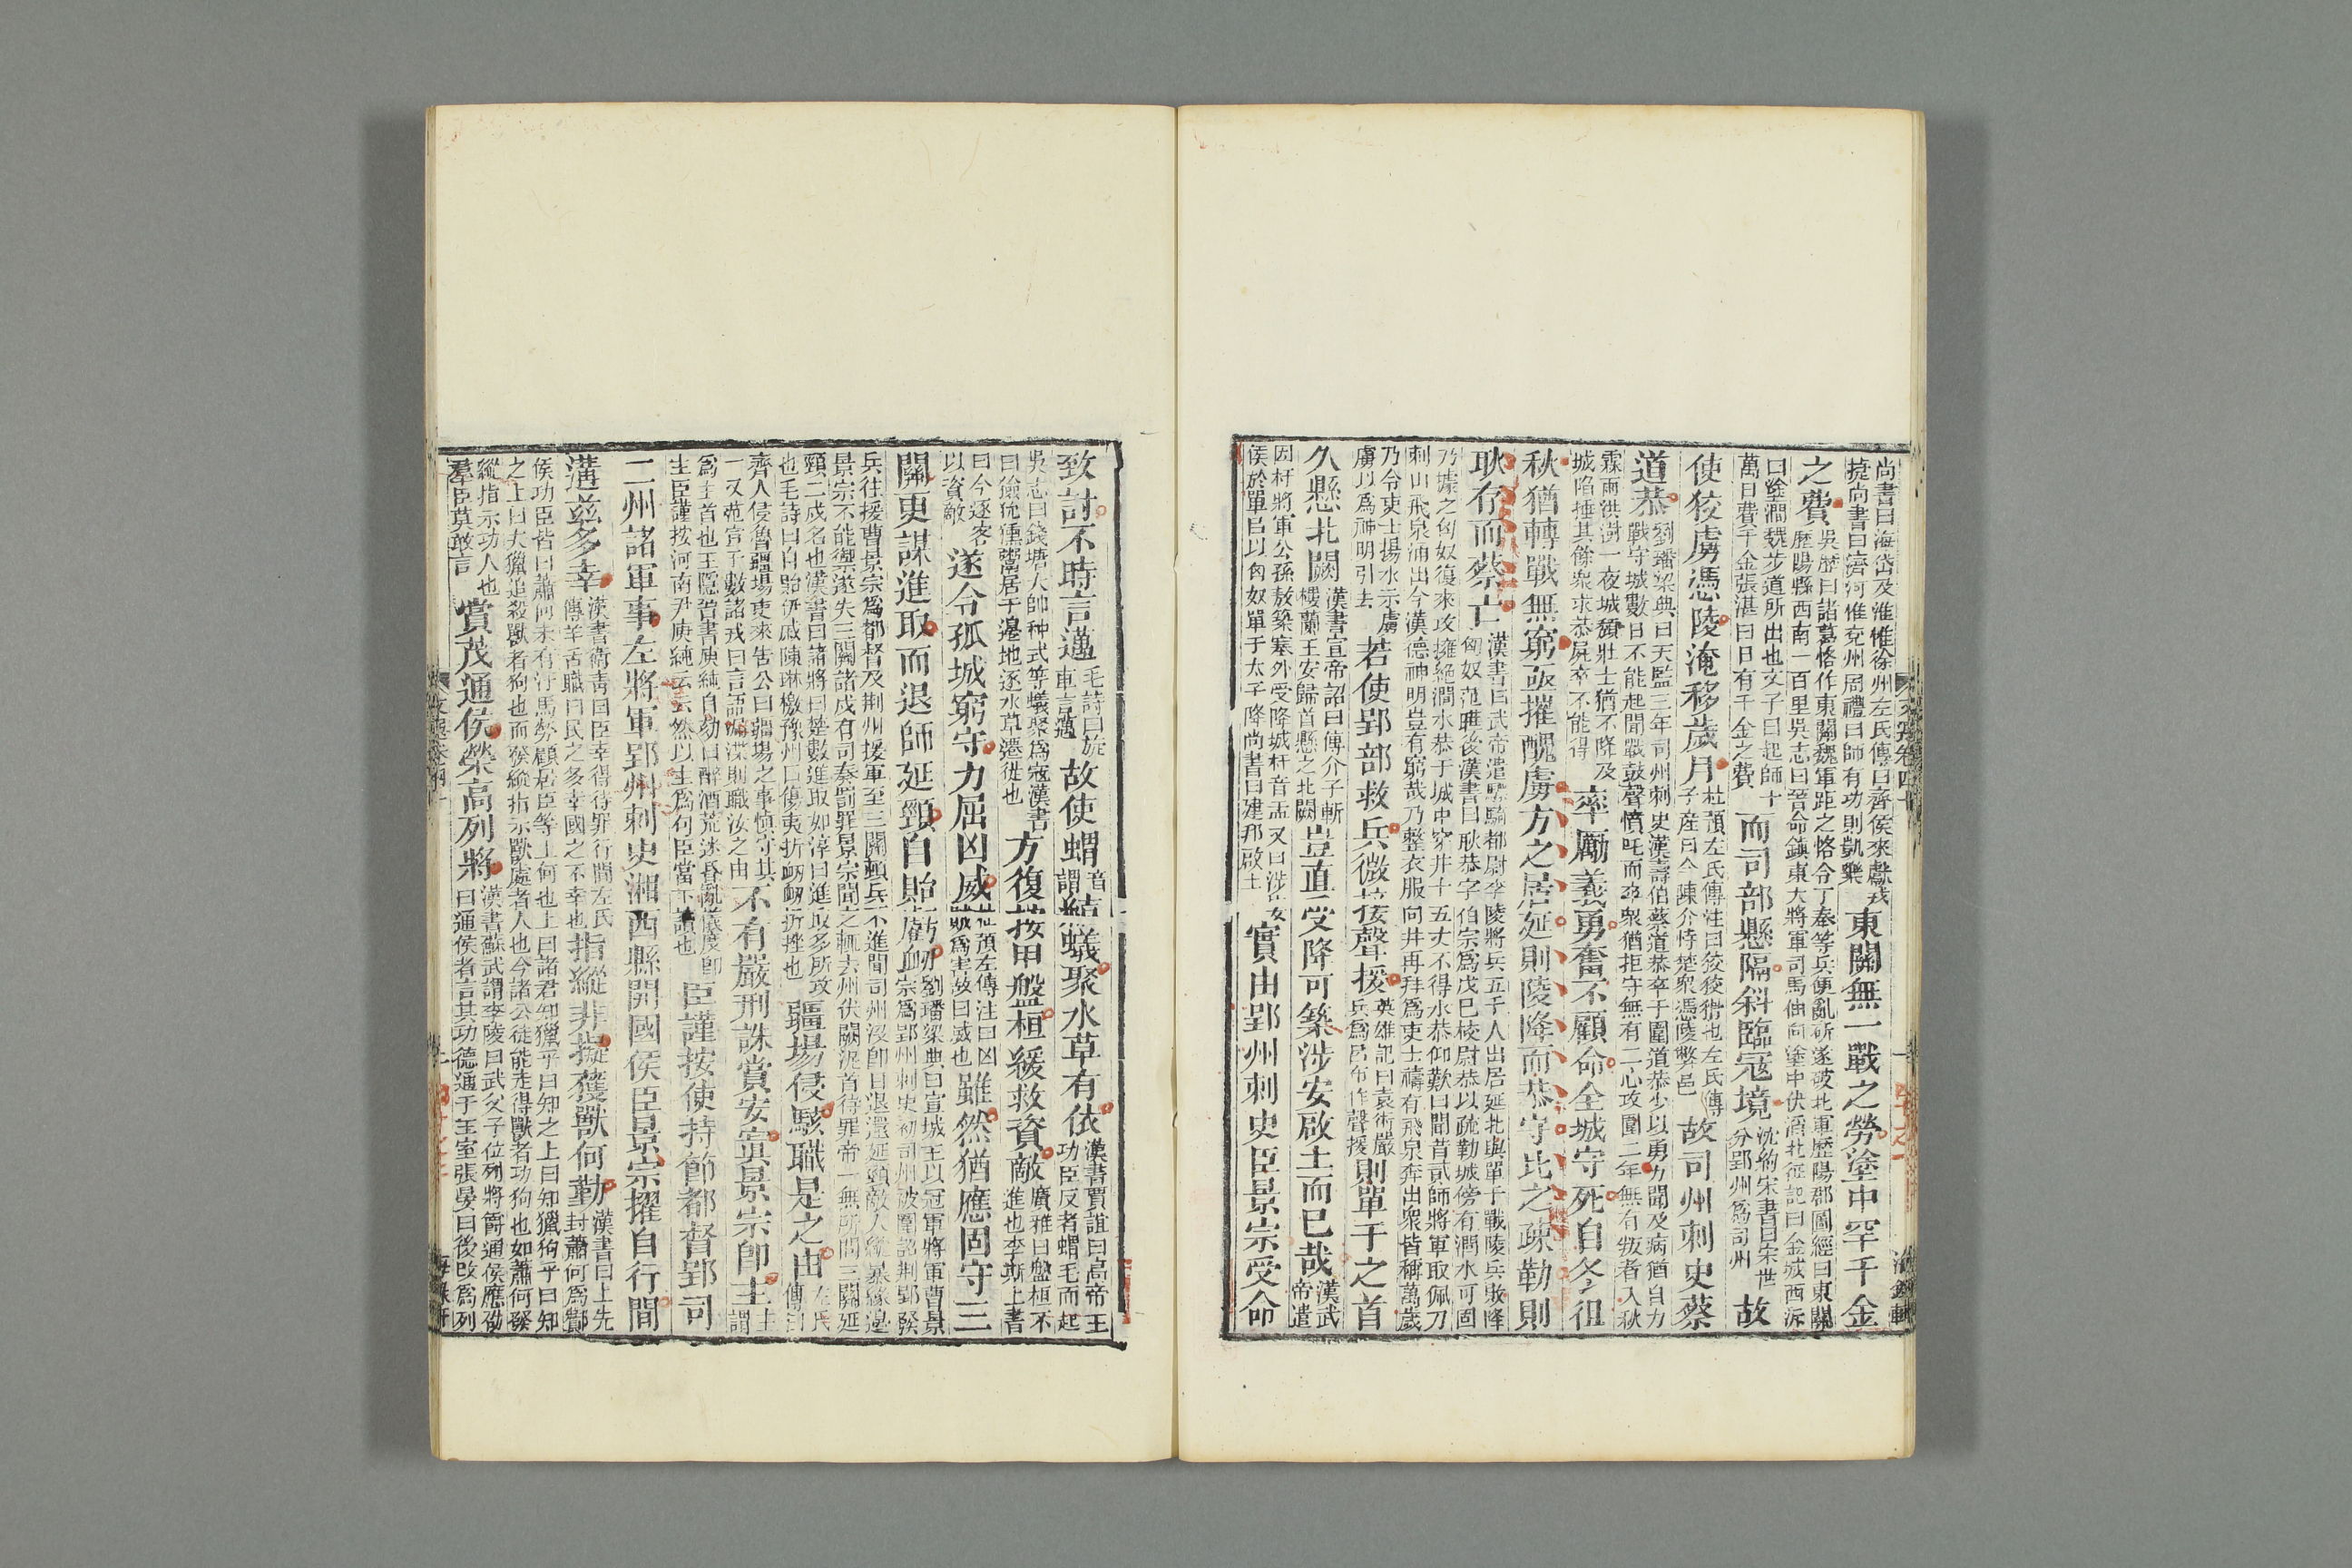 尚書曰海岱及淮惟徐州左氏傳曰齊侯來獻戎
捷尚書曰濟河惟兗州周禮曰師有功則凱樂
東關無一戰之勞塗中罕千金
之費
吳歷曰諸葛恪作東關魏軍距之恪令丁奉等兵便亂斫遂破北軍歷陽郡圖經曰東關
歷陽縣西南一百里吳志曰晉命鎮東大將軍司馬伷向塗中伏滔北征記曰金城西泝
曰塗澗魏步道所出也文子曰起師十
萬日費千金張湛曰日有千金之費
而司部懸隔斜臨寇境
沈約宋書曰宋世
分郢州爲司州
故
使狡虜憑陵淹移歲月
杜預左氏傳注曰狡狡猾也左氏傳
子產曰今陳介恃楚衆憑陵弊邑
故司州刺史蔡
道恭
劉璠梁典曰天監三年司州刺史漢壽伯蔡道恭卒于圍道恭少以勇力聞及病猶自力
戰守城數日不能起聞戰鼓聲憤吒而卒衆猶拒守無有二心攻圍二年無有叛者入秋
霖雨洪澍一夜城頹壯士猶不降及
城陷捶其餘衆求恭屍卒不能得
率厲義勇奮不顧命全城守死自冬徂
秋猶轉戰無窮亟摧醜虜方之居延則陵降而恭守比之疎勒則
耿存而蔡亡
漢書曰武帝遣騎都尉李陵將兵五千人出居延北與單于戰陵兵敗降
匈奴范曄後漢書曰耿恭字伯宗爲戊巳校尉恭以疏勒城傍有澗水可固
乃據之匈奴復來攻擁絕澗水恭于城中穿井十五丈不得水恭仰歎曰聞昔貳師將軍取佩刀
刺山飛泉涌出今漢德神明豈有窮哉乃整衣服向井再拜爲吏士禱有飛泉奔出衆皆稱萬歲
乃令吏士揚水示虜
虜以爲神明引去
若使郢部救兵微接聲援
英雄記曰袁術嚴
兵爲呂布作聲援
則單于之首
久懸北闕
漢書宣帝詔曰傅介子斬
樓蘭王安歸首懸之北闕
豈直受降可築涉安啟土而已哉
漢武
帝遣
因杅將軍公孫敖築塞外受降城杅音盂又曰涉安
侯於單巨以匈奴單于太子降尚書曰建邦啟土
實由郢州刺史臣景宗受命
致討不時言邁
毛詩曰旋
車言邁
故使蝟
音
謂
結蟻聚水草有依
漢書賈誼曰高帝王
功臣反者蝟毛而起
吳志曰錢塘大帥种式等蟻聚爲寇漢書
曰獫狁獯鬻居于邊地逐水草遷徙也
方復按甲盤桓緩救資敵
廣雅曰盤桓不
進也李斯上書
曰今逐客
以資敵
遂令孤城窮守力屈凶威
杜預左傳注曰凶
威爲害故曰威也
雖然猶應固守三
關更謀進取而退師延頸自貽虧衂
劉璠梁典曰宣城王以冠軍將軍曹景
宗爲郢州刺史初司州被圍詔荆郢發
兵往援曹景宗爲都督及荆州援軍至三關頓兵不進聞司州沒卽日退還延頸敵人縱暴緣邊
景宗不能禦遂失三關諸戍有司奏罰罪景宗聞之輒去州伏闕泥首待罪帝一無所問三關延
頸二戍名也漢書曰諸將曰楚數進取如淳曰進取多所攻
也毛詩曰自貽伊慼陳琳檄豫州曰傷夷折衂衂折挫也
疆場侵駭職是之由
左氏
傳曰
齊人侵魯疆場吏來告公曰疆場之事慎守其
一又范宣子數諸戎曰言語漏渫則職汝之由
不有嚴刑誅賞安寘景宗卽主
主
謂
爲主首也王隱晉書庾純自劾曰醉酒荒迷昏亂儀度卽
主臣謹按河南尹庾純云云然以主爲句臣當下讀也
臣謹按使持節都督郢司
二州諸軍事左將軍郢州刺史湘西縣開國侯臣景宗擢自行間
遘茲多幸
漢書衛青曰臣幸得待罪行間左氏
傳羊舌職曰民之多幸國之不幸也
指縱非擬獲獸何勤
漢書曰上先
封蕭何爲酇
侯功臣皆曰蕭何未有汗馬勞顧居臣等上何也上曰諸君知獵乎曰知之上曰知獵狗乎曰知
之上曰夫獵追殺獸者狗也而發縱指示獸處者人也今諸公徒能走得獸者功狗也如蕭何發
縱指示功人也
羣臣莫敢言
賞茂通侯榮高列將
漢書蘇武謂李陵曰武父子位列將爵通侯應劭
曰通侯者言其功德通于王室張晏曰後改爲列